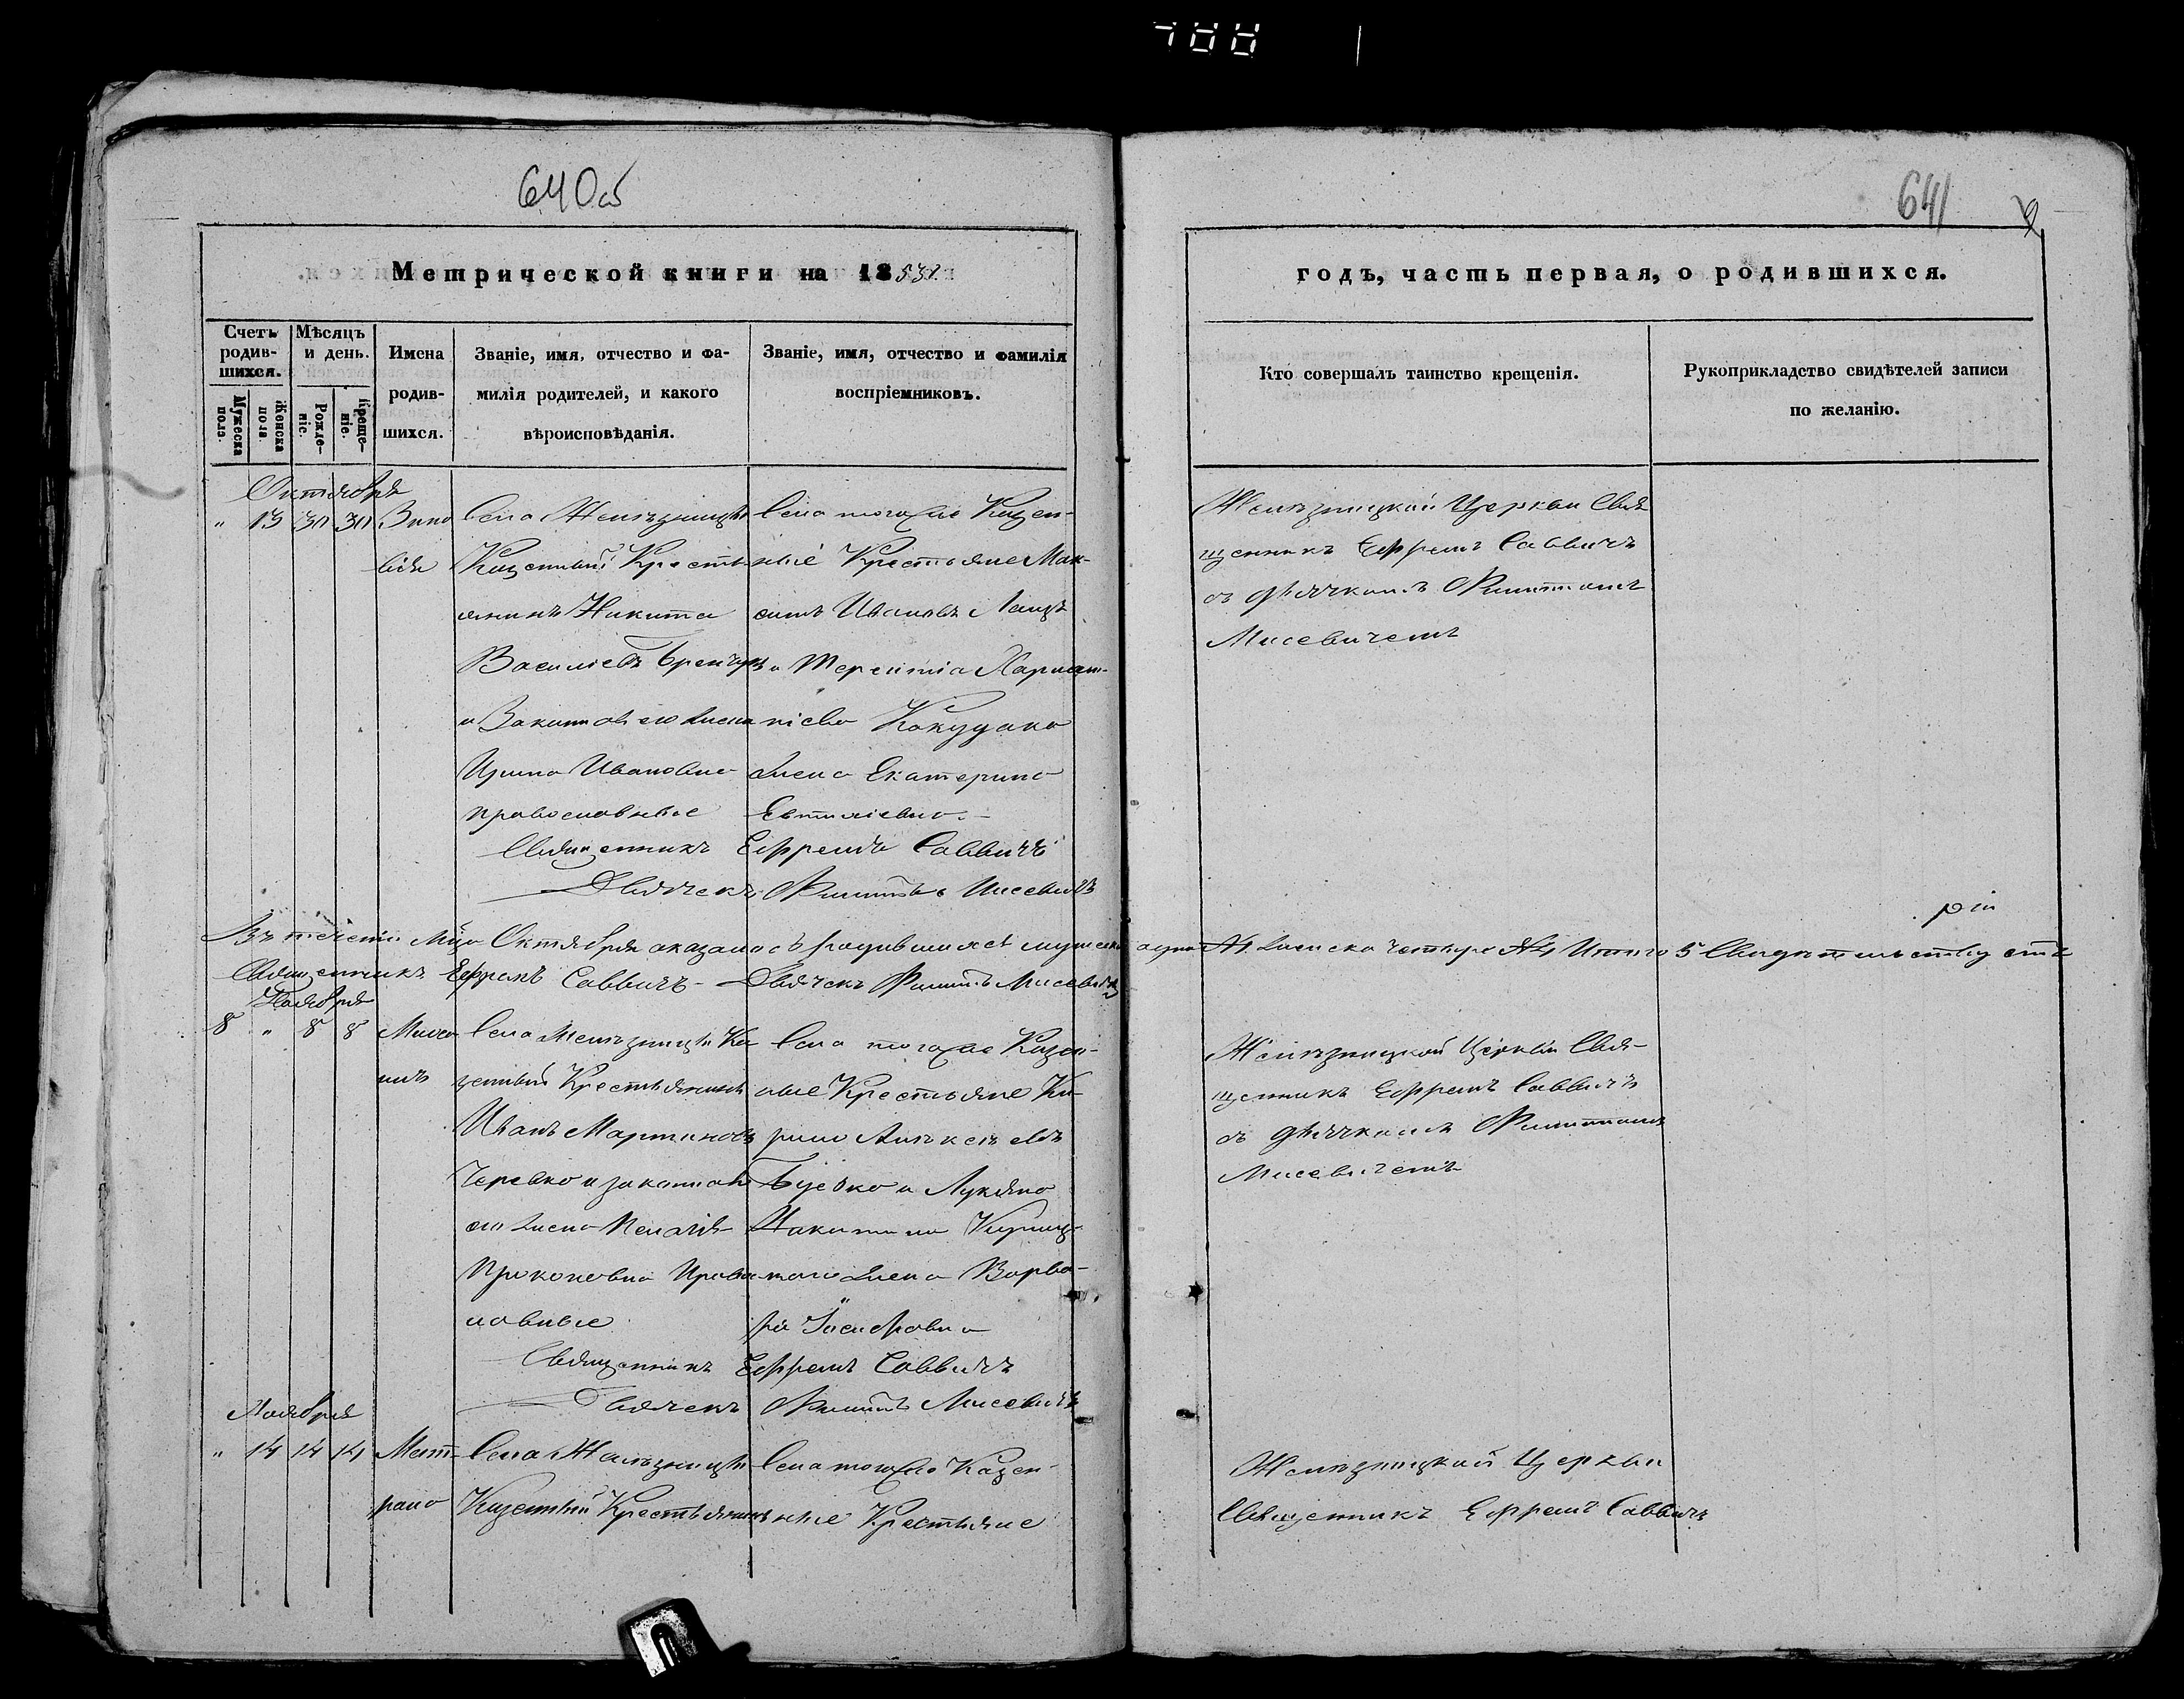 640об
641
Метрической книги на 1853й
годъ, часть первая, о родившихся.
Счетъ родив-шихся.
Мужеска пола.
Женска пола.
Мѣсяцъ и день.
Рожде-ніе.
Креще-ніе.
Имена родив-шихся.
Званіе, имя, отчество и фа-
милія родителей, и какого
вѣроисповѣданія.
Званіе, имя, отчество и фамилія
воспріемниковъ.
Кто совершалъ таинство крещенія.
Рукоприкладство свидѣтелей записи
по желанію.
Октября
" 13 30 30 Зино
вія
Села Желѣзницы
Казенный Кресть
янинъ Никита
Василіевъ
и Законная его жена
Ирина Ивановна
православные
Села тогоже Казен-
ные Крестьяне Мак-
симъ Ивановъ
и Терентіа Харлам-
піева
жена Екатерина
Священникъ Ефремъ Саввичъ
Дьячекъ Филиппъ Мисевичъ
Желѣзницкой Церкви Свя
щенникъ Ефремъ Саввичъ
съ дьячкомъ Филиппомъ
Мисевичемъ
Въ теченіи Мца Октября оказалось родившихся мужеска одинъ №1 женска четыре №4 Итого 5 Свидѣтельствуемъ
Священникъ Ефремъ Саввичъ - Дьячекъ Филиппъ Мисевичъ
Ноября
8 " 8 8 Миха
илъ
Села Желѣзницы Ка
зенный Крестьянинъ
Иванъ Мартиновъ
Черевко и законная
его жена Пелагія
Прокоповна Право
славные
Села тогоже Казен-
ные Крестьяне Ки-
рило Алексѣевъ
и Лукіяна
Никитина
жена Варва-
ра
Священникъ Ефремъ Саввичъ
Дьячекъ Филиппъ Мисевичъ
Желѣзницкой Церкви Свя-
щенникъ Ефремъ Саввичъ
съ дьячкомъ Филиппомъ
Мисевичемъ
Ноября
" 14 14 14 Мат
рона
Села Желѣзницы
Казенный Крестьянинъ
Села тогоже Казен-
ные Крестьяне
Желѣзницкой Церкви
Священникъ Ефремъ Саввичъ